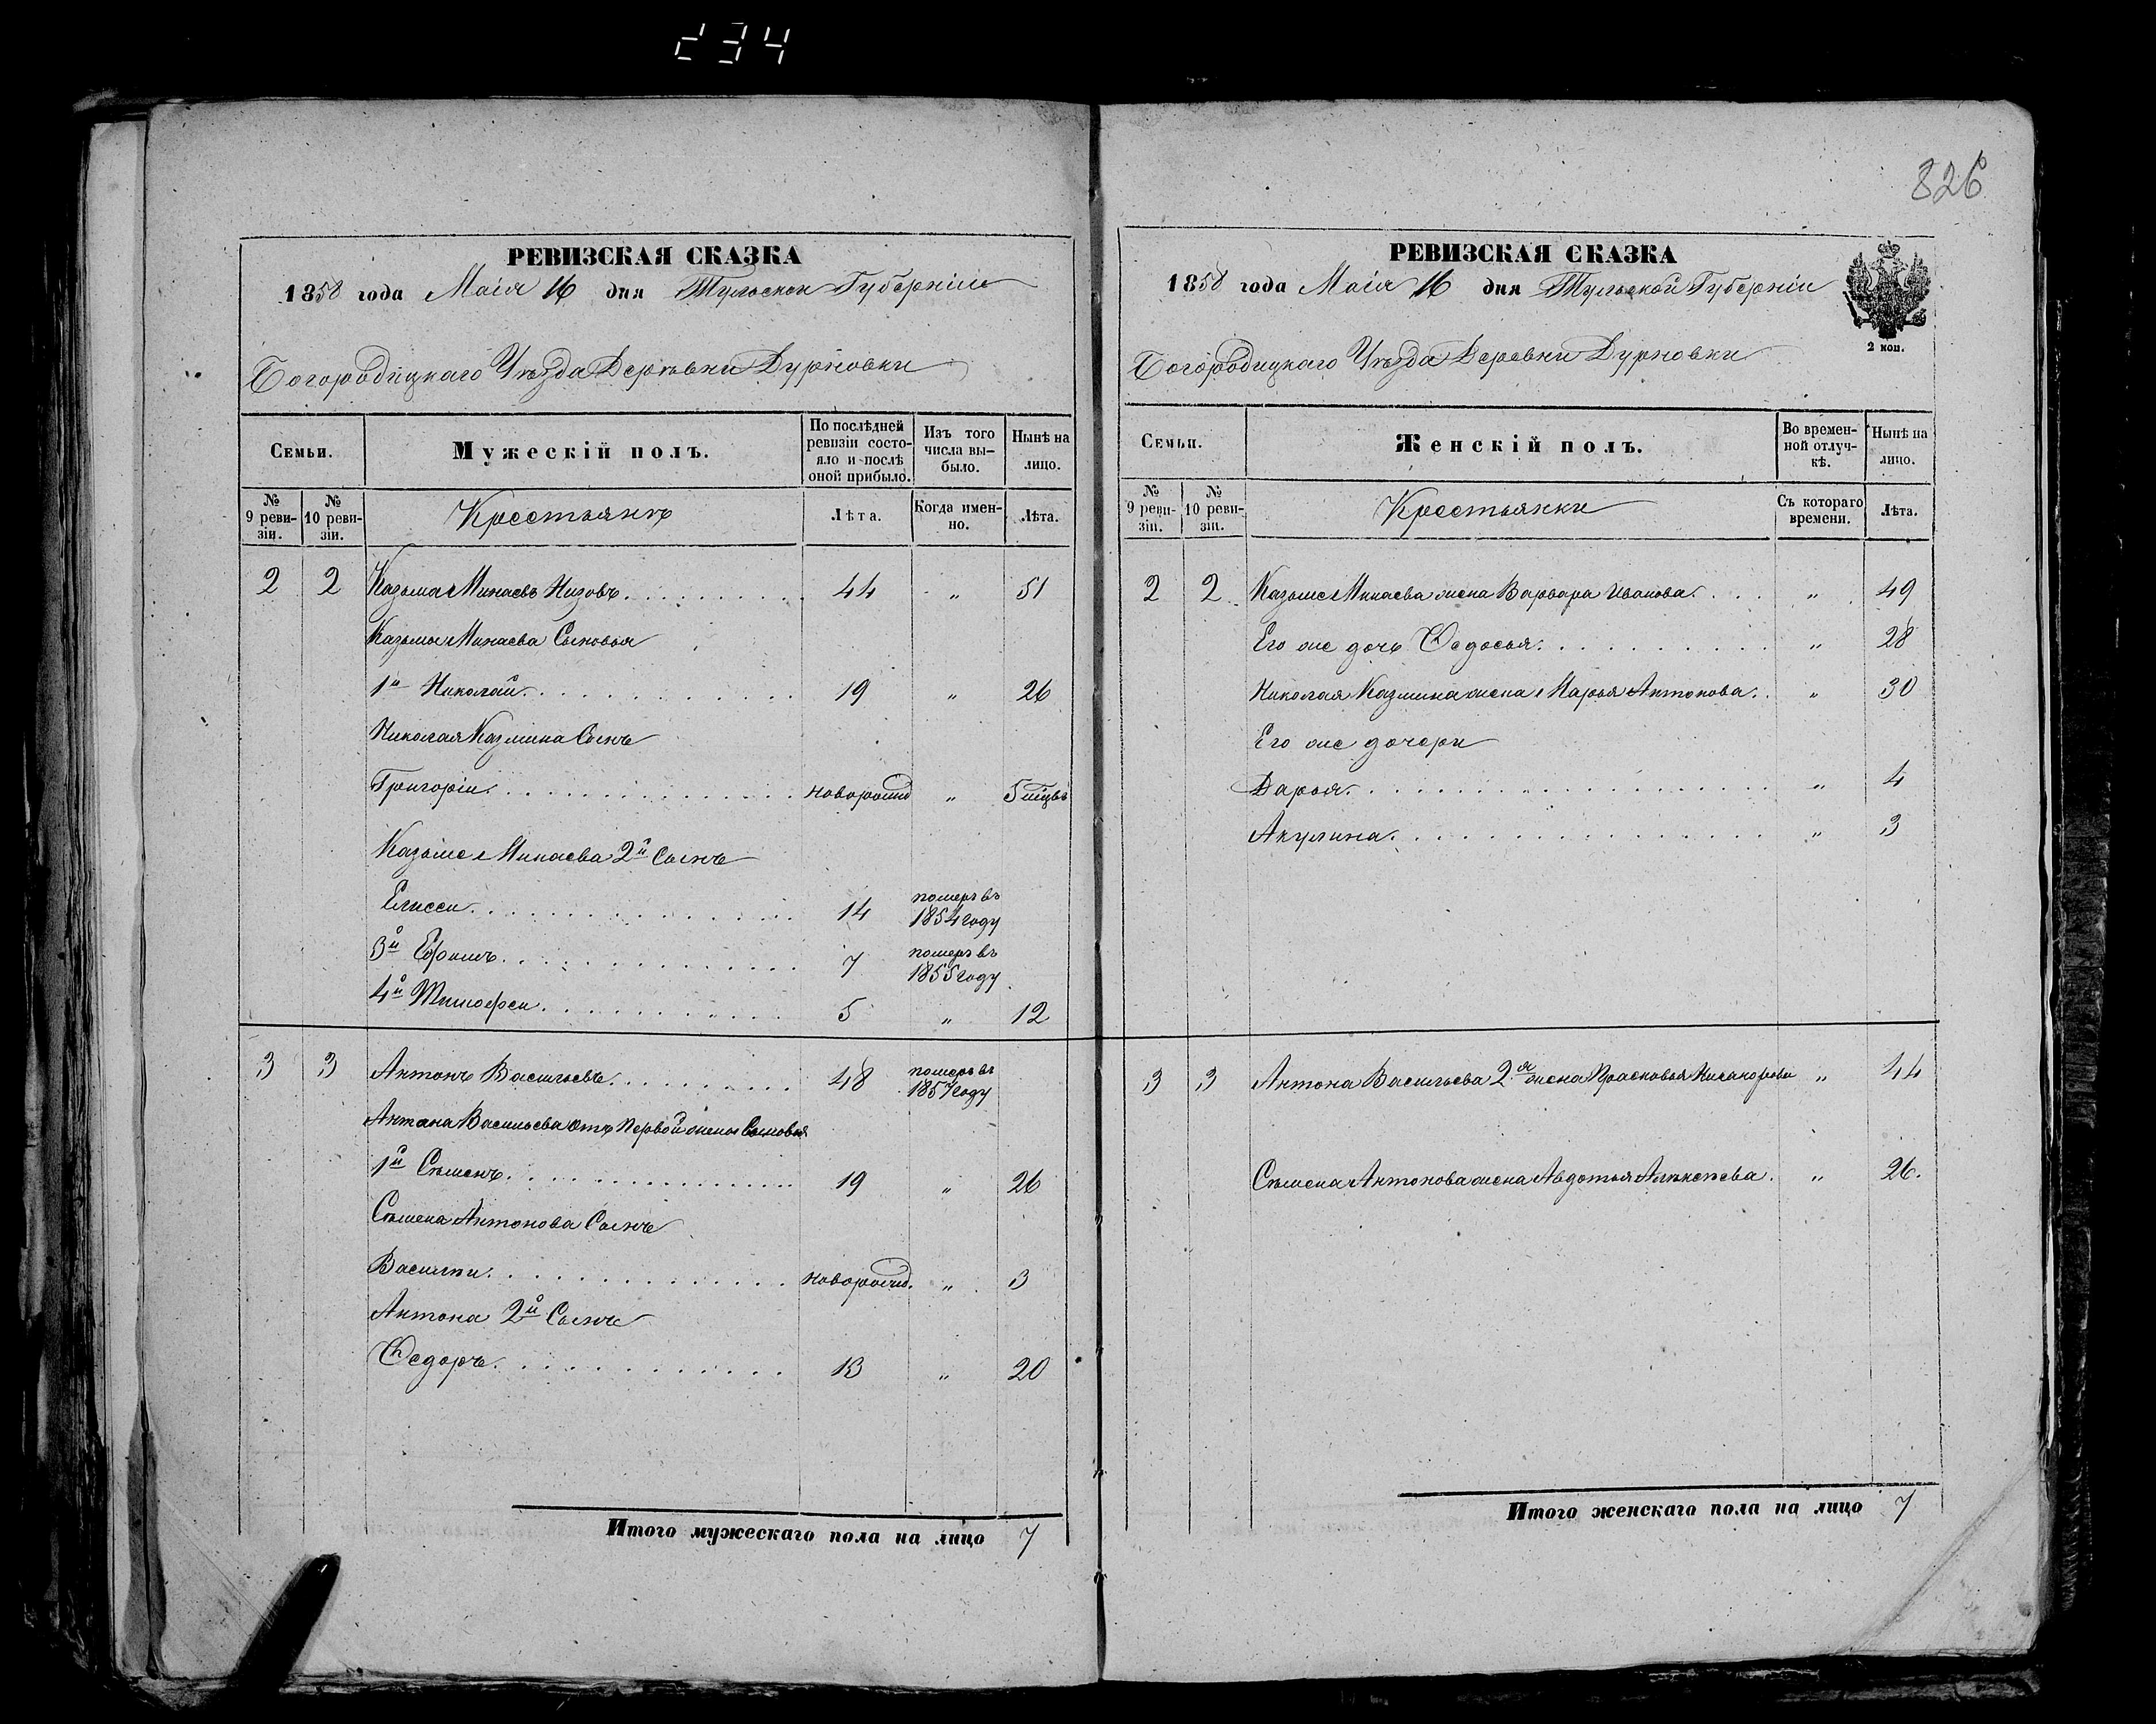 234
826
РЕВИЗСКАЯ СКАЗКА
1858 года Маія 16 дня Тульской Губерніи
Богородицкаго Уѣзда Деревни Дурновки
Семьи.
Мужескій полъ.
По послѣдней ревизіи состояло и послѣ оной прибыло.
Изъ того числа выбыло.
Нынѣ на лицо.
№ 9 ревизіи.
№ 10 ревизіи.
Крестьянъ
Лѣта.
Когда именно.
Лѣта.
2 2 Казьма Минаевъ Низовъ 44 " 51
Казьмы Минаева Сыновья
1й Николай 19 " 26
Николая Казмина Сынъ
Григорій новорожд " 5 мцвъ
Казьмы Минаева 2й Сынъ
Елисеи 14 померъ въ 1854 году
3й Ефимъ 7 померъ въ 1855 году
4й Тимофеи 5 " 12
3 3 Антонъ Васильевъ 48 померъ въ 1857 году
Антона Васильева отъ Первой жены Сыновья
1й Сѣменъ 19 " 26
Сѣмена Антонова Сынъ
Василіи новорожд. " 3
Антона 2й Сынъ
Ѳедоръ 13 " 20
Итого мужескаго пола на лицо 7
РЕВИЗСКАЯ СКАЗКА
1858 года Маія 16 дня Тульской Губерніи
2 коп.
Богородицкаго Уѣзда Деревни Дурновки
Семьи.
Женскій полъ.
Во временной отлучкѣ.
Нынѣ на лицо.
№ 9 ревизіи.
№ 10 ревизіи.
Крестьянки
Съ котораго времени.
Лѣта.
2 2 Казьмы Минаева жена Варвара Иванова " 49
Его же дочь Ѳедосья " 28
Николая Казмина жена Марья Антонова " 30
Его же дочери
Дарья " 4
Акулина " 3
3 3 Антона Васильева 2я жена Прасковья " 44
Сѣмена Антонова жена Авдотья Алѣксѣева " 26.
Итого женскаго пола на лицо 7